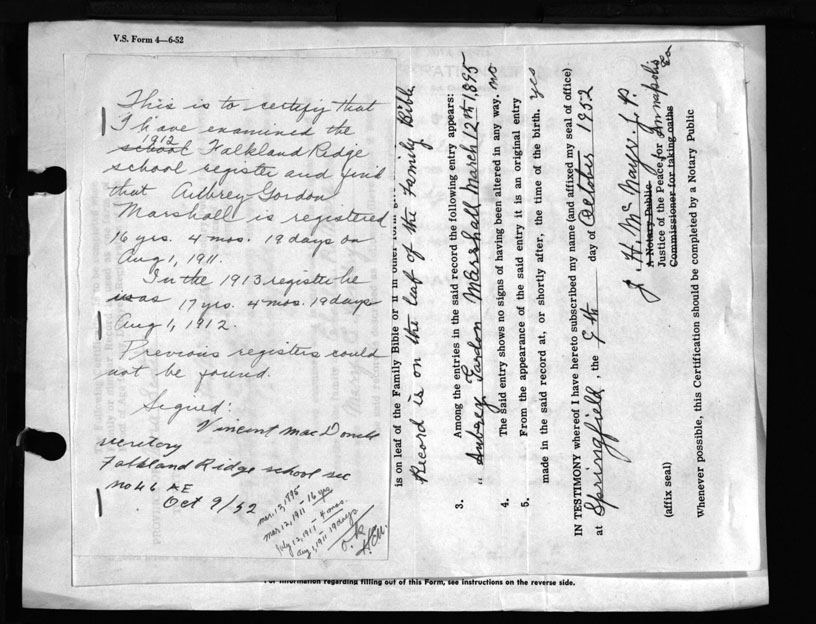 V.S. Form 4—6-52
This is to certify that
I have examined the
1912
school Falkland Ridge
school register and find
that Aubrey Gordon
Marshall is registered
16 yrs. 4 mos. 19 days on
Aug 1, 1911.
In the 1913 register he
was 17 yrs. 4 mos. 19 days
Aug 1, 1912.
Previous registers could
not be found.
Signed:
Vincent MacDonald
secretary
Falkland Ridge school sec
no 46 AE
Oct 9/52
mar, 12, 1895
mar, 12, 1911 – 16 yrs
july 12, 1911 – 4 mos
aug 1, 1911 – 19 days
O.K.
is on leaf of the Family Bible or if in other form
Record is on the leaf of the Family Bible
3. Among the entries in the said record the following entry appears:
" Aubrey Gordon Marshall March 12th 1895
4. The said entry shows no signs of having been altered in any way. no
5. From the appearance of the said entry it is an original entry
made in the said record at, or shortly after, the time of the birth. yes
IN TESTIMONY whereof I have hereto subscribed my name (and affixed my seal of office)
at Springfield, the 9th day of October 1952
J. H. McNayr J. P.
A Notary Public
Justice of the Peace for Annapolis Co
Commissioner for taking oaths
(affix seal)
Whenever possible, this Certification should be completed by a Notary Public
For information regarding filling out of this Form, see instructions on the reverse side.